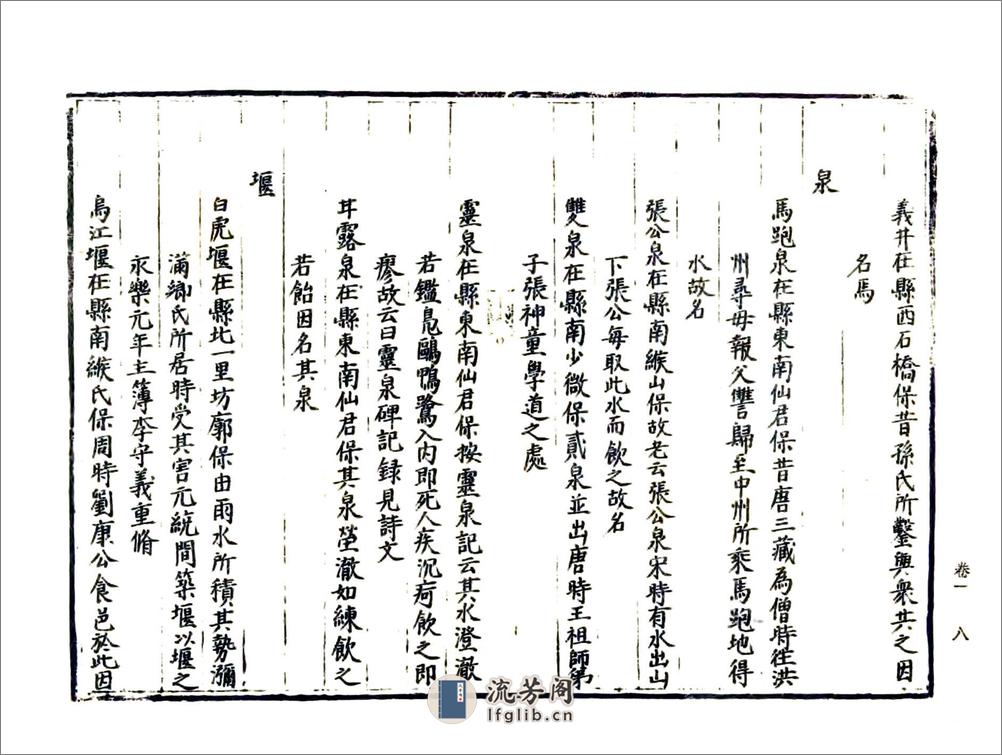 義井在縣西石橋保昔孫氏所鑿與衆共之因
名焉
泉
馬跑泉在縣東南仙君保昔唐三藏為僧時徃洪
州尋母報父讐歸至中州所乘馬跑地得
水故名
張公泉在縣南緱山保故老云張公泉宋時有水出山
下張公每取此水而飲之故名
雙泉在縣南少微保貳泉並出唐時王祖師第
子張神童學道之處
靈泉在縣東南仙君保按靈泉記云其水澄澈
若鑑鳧鷗鴨鷺入內即死人疾沉疴飲之即
瘳故云曰靈泉碑記録見詩文
甘露泉在縣東南仙君保其泉瑩澈如練飲之
若飴因名其泉
堰
白虎堰在縣北一里坊廓保由雨水所積其勢瀰
滿鄉氏所居時受其害元統間築堰以堰之
永樂元年主簿李守義重脩
烏江堰在縣南緱氏保周時劉康公食邑於此因
卷一
八
流芳阁
lfglib.cn